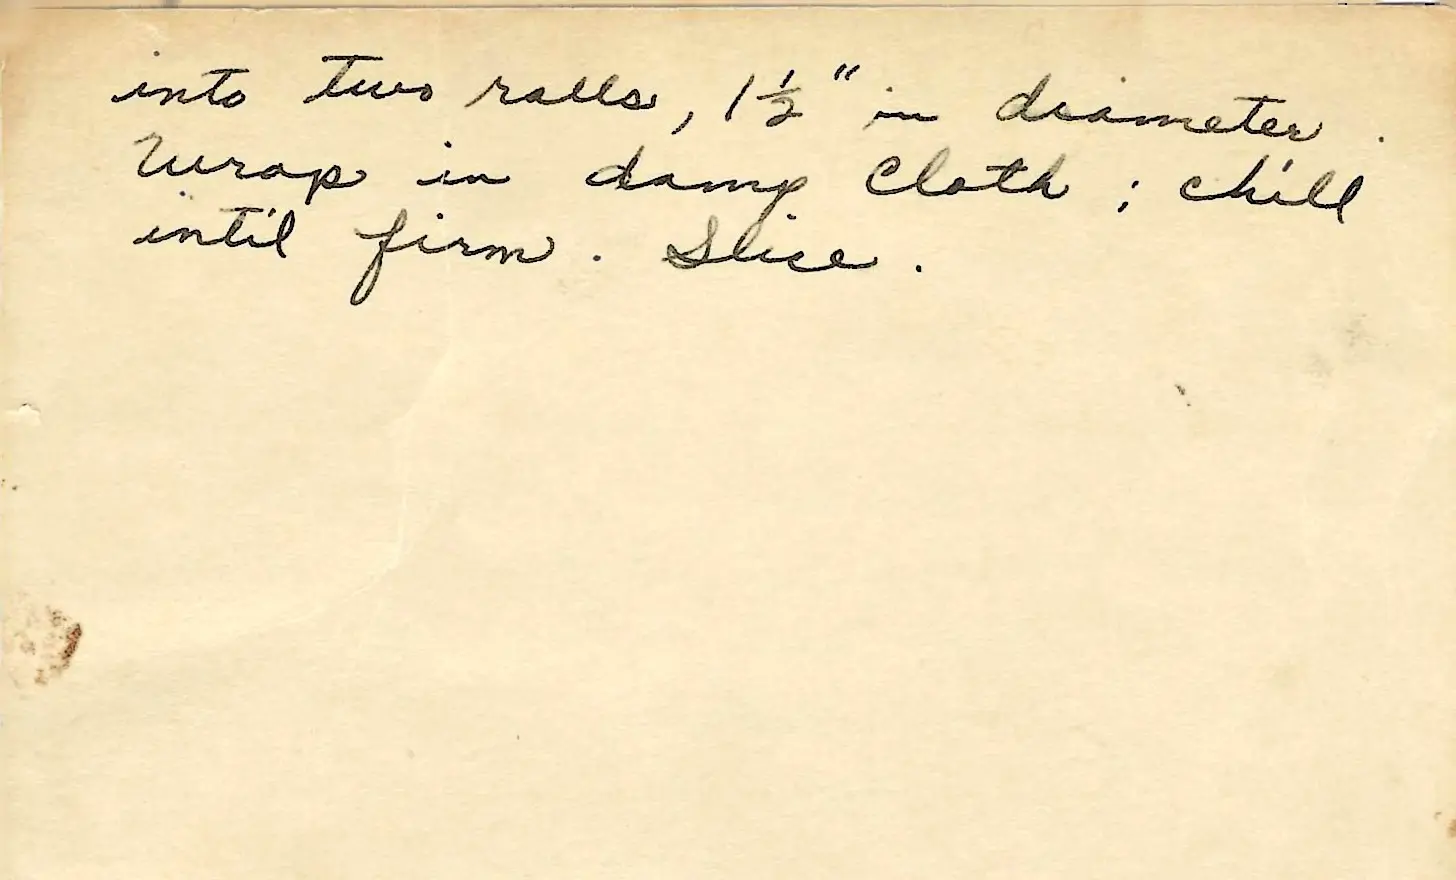 into two rolls, 1½" in diameter.
Wrap in damp cloth; chill
until firm. Slice.